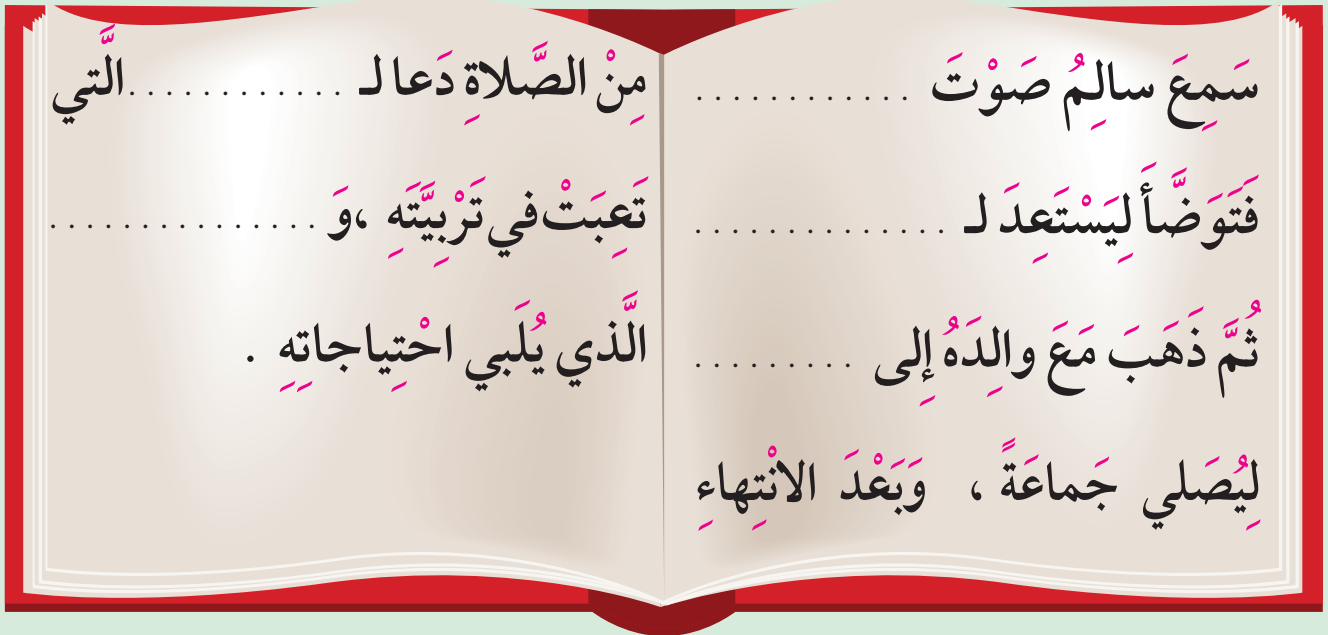 سَمِعَ سالِمُ صَوْتَ ............
فَتَوَضَّأَ لِيَسْتَعِدَ لـ ..............
ثُمَّ ذَهَبَ مَعَ والِدَهُ إِلى .........
لِيُصَلي جَماعَةً ، وَبَعْدَ الانْتِهاءِ
مِنْ الصَّلاةِ دَعا لـ ............ الَّتي
تَعِبَتْ في تَرْبِيَّتَهِ ،وَ ...............
الَّذي يُلَبي احْتِياجاتِهِ .